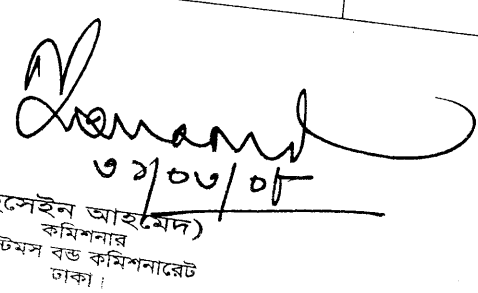 ৩১/০৩/০৮
হোসেইন আহমেদ)
কমিশনার
কাস্টমস বন্ড কমিশনারেট
ঢাকা।